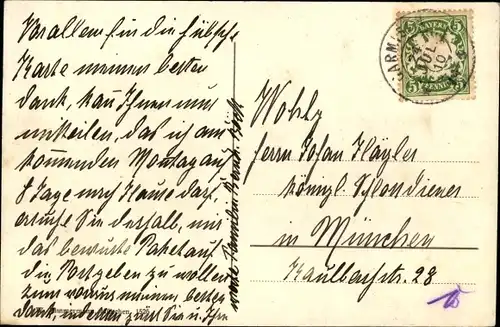 Vor allem für die hübsche
Karte meinen besten
dank, kan Ihnen nur
mitteilen, das ich am
kommenden Montag auf
8 Tage nach Hause darf,
ersuche Sie deshalb, mir
das bewuste Paket auf
die Post geben zu wollen
zum voraus meinen besten
dank, indessen grüst Sie u. Ihre
werte Familie
Wohlg.
Herrn Johan Hägler
königl. Schlossdiener
in München
Kaulbachstr. 28
BAYERN
5 5
5 PFENNIG 5
JUL
10